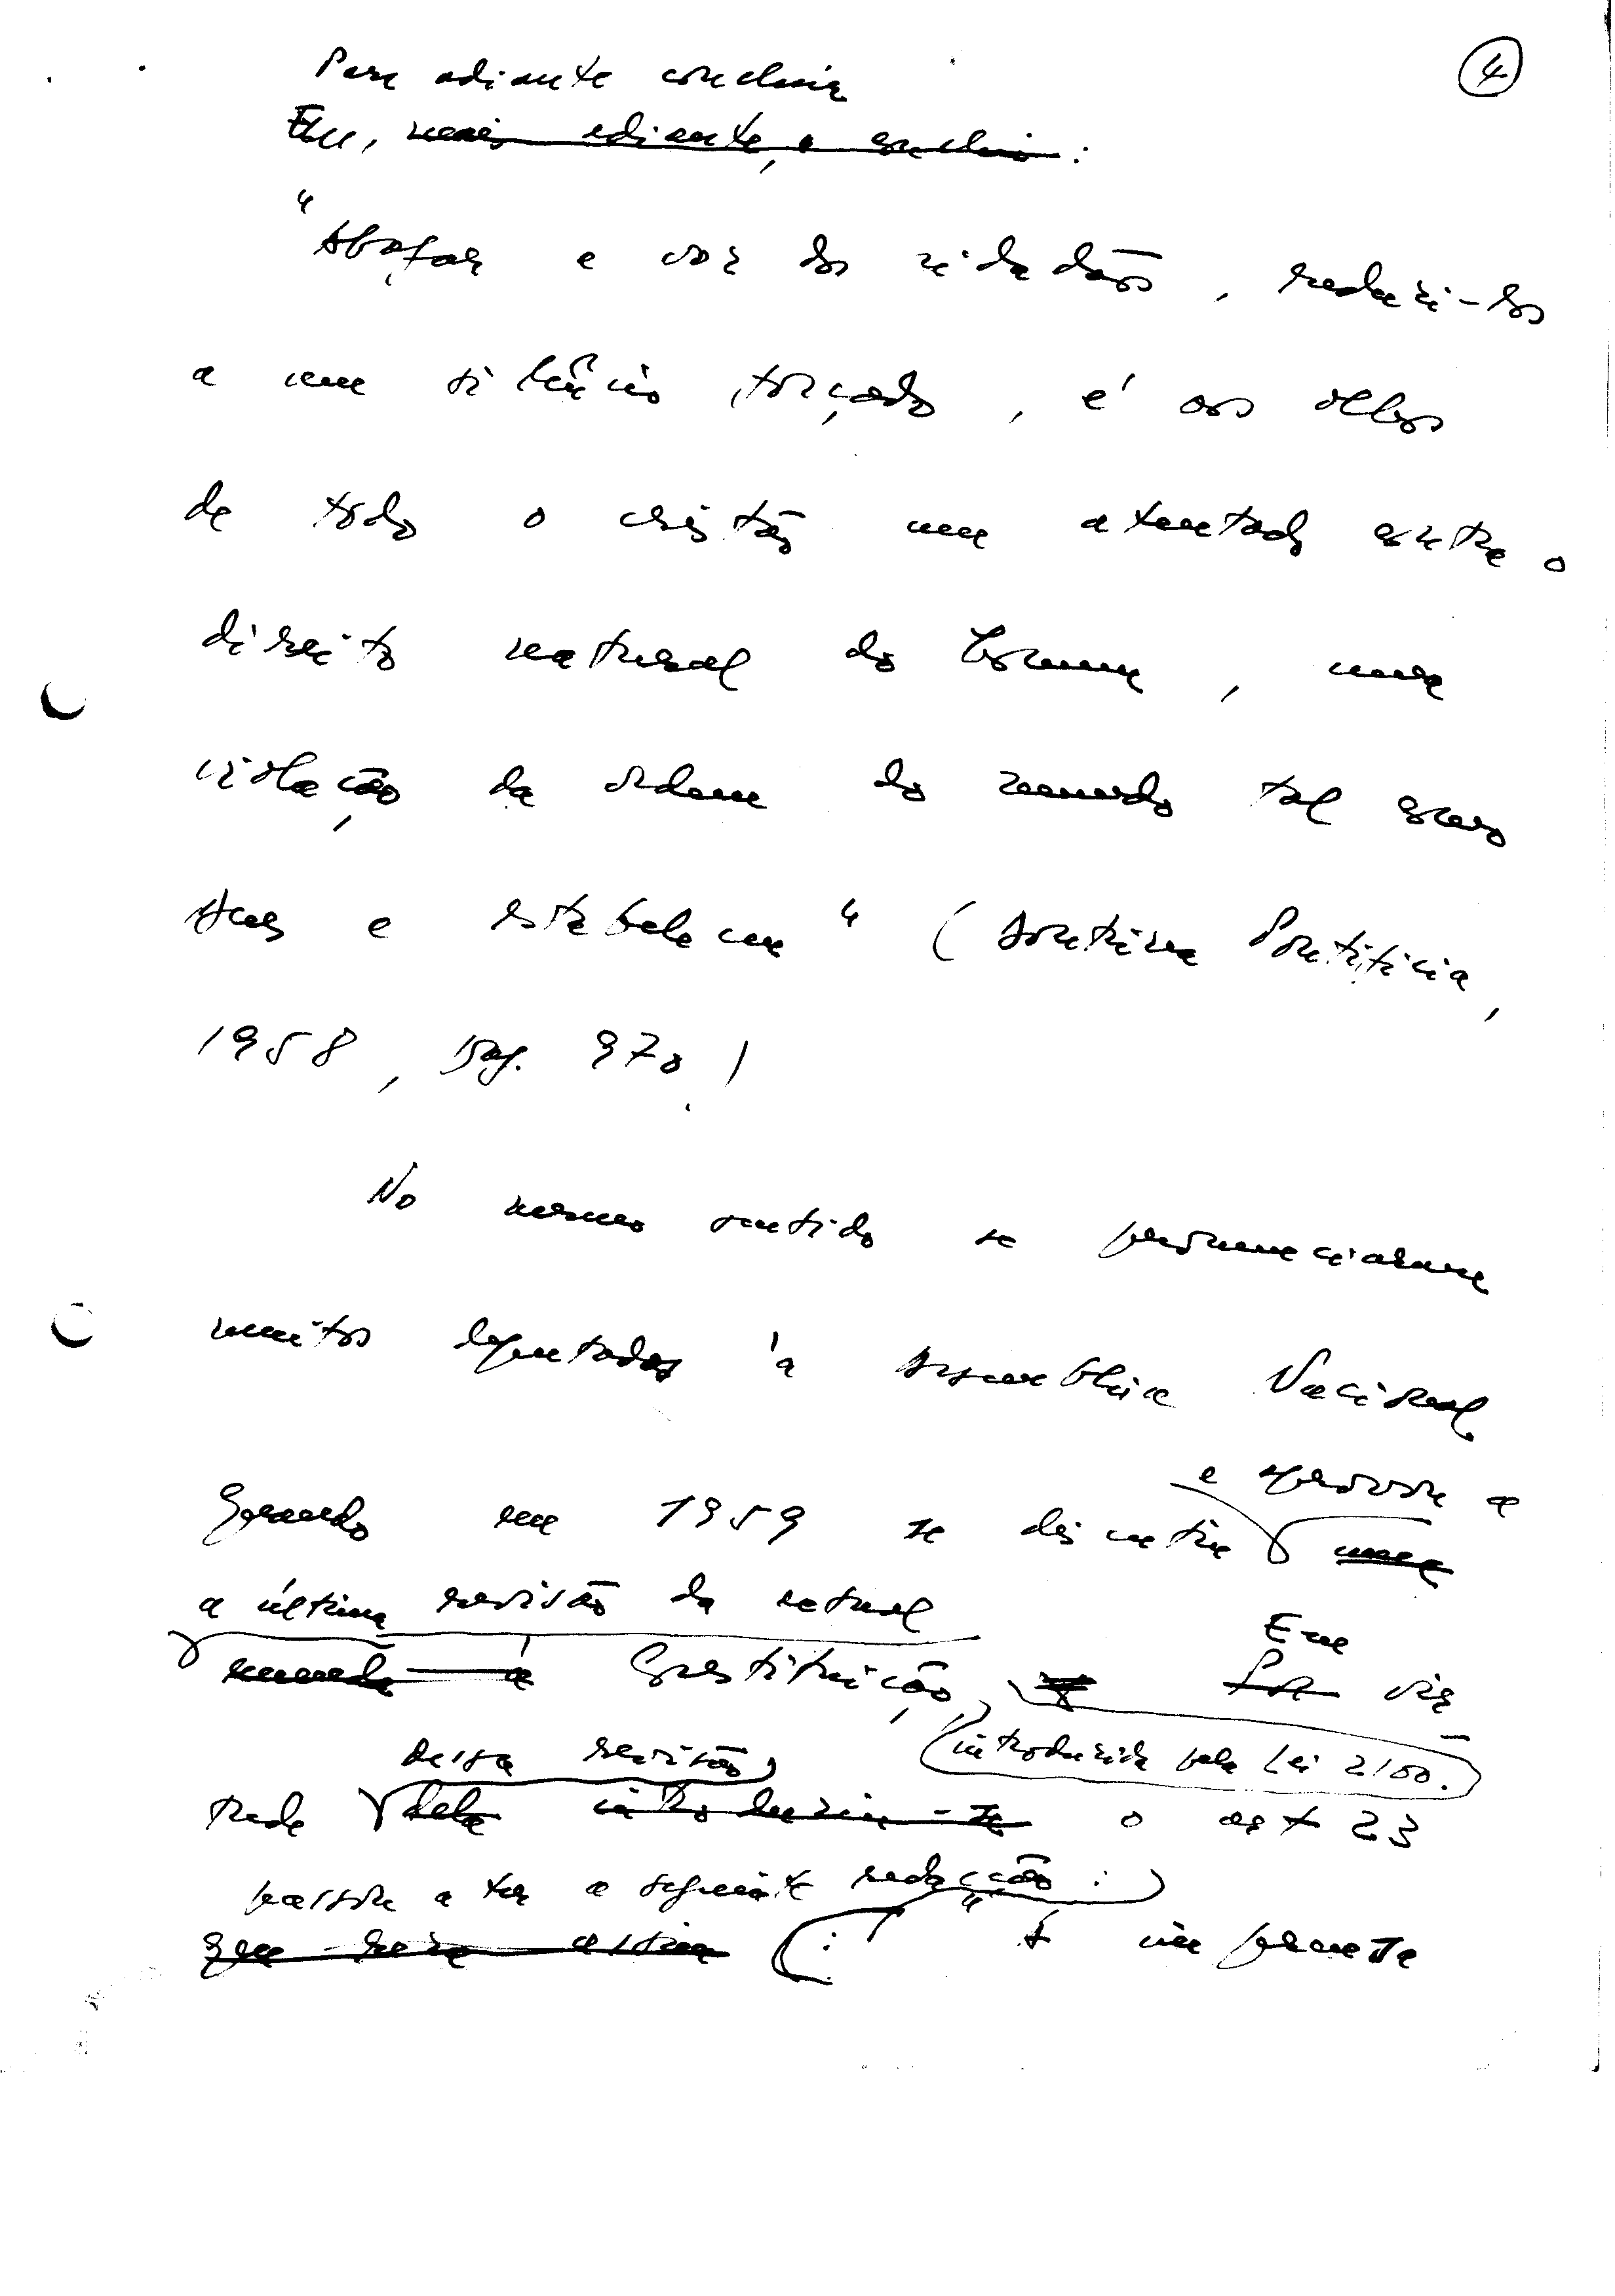 4
Para adiante concluir
E eu, mais adiante, a concluir:
"Abafar a voz dos cidadãos, reduzi-los
a um silêncio forçado, é aos olhos
de todo o cristão um atentado contra o
direito natural do homem, uma
violação da ordem do mundo tal como
Deus a estabeleceu" (Doutrina Pontifícia,
1958, pág. 970)
No mesmo sentido se pronunciaram
muitos deputados à Assembleia Nacional
e aprovou a
quando em 1959 se discutiu uma
a última revisão da actual
emenda à Constituição Em
Por vir
dessa revisão, introduzida pela Lei 2100.
tude dela introduziu-se o art 23
passou a ter a seguinte redacção:
que reza assim : "A imprensa